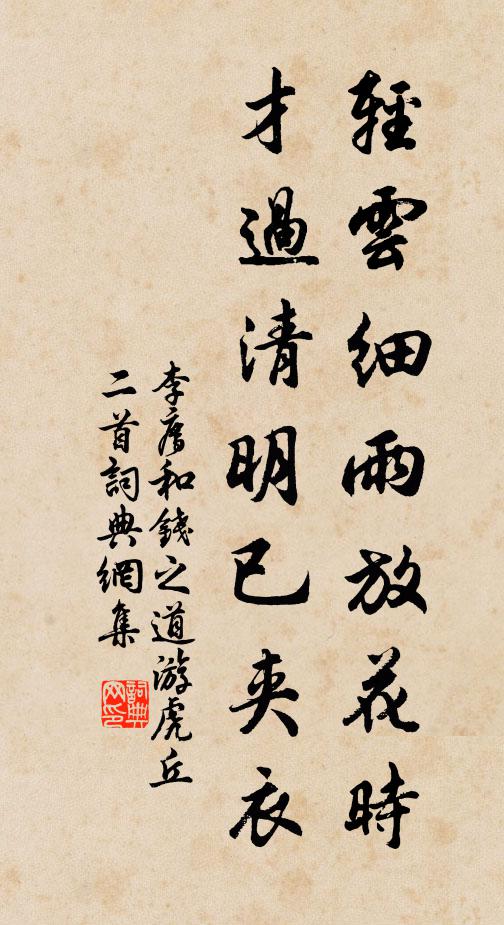 輕雲細雨放花時
才過清明已夾衣
李膺和錢之道游虎丘
二首詞典網集
詞典网印